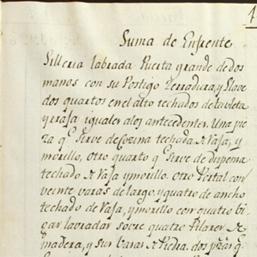 4
Suma de Enfrente
Silleria labrada Puerta grande de dos
manos con su Postigo Zerradura, y Llave
dos quartos en el alto techados de tableta
y rasa iguales a los antecedentes. Una pie
za qe. sirve de Cozina techada de Vasa, y
morillo, otro quarto qe. sirve de
techado de Vasa y morillo otro Portal con
veinte varas de largo, y quatro de ancho
techado de Vasa, y morillo con quatro bi
gas labradas sovre quatro Pilares de
madera, y sus Varas de Piedra. dos